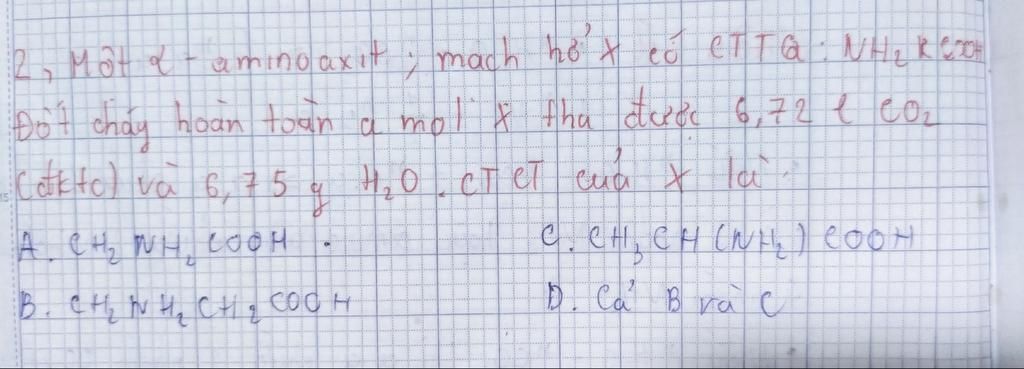 2, Một α - aminoaxit, mạch hở X có CTTQ: NH₂RCOOH
Đốt cháy hoàn toàn a mol X thu được 6,72 l CO₂
(đktc) và 6,75 g H₂O. CTCT của X là:
A. CH₂NH₂COOH. C. CH₃CH(NH₂)COOH
B. CH₂NH₂CH₂COOH D. Cả B và C